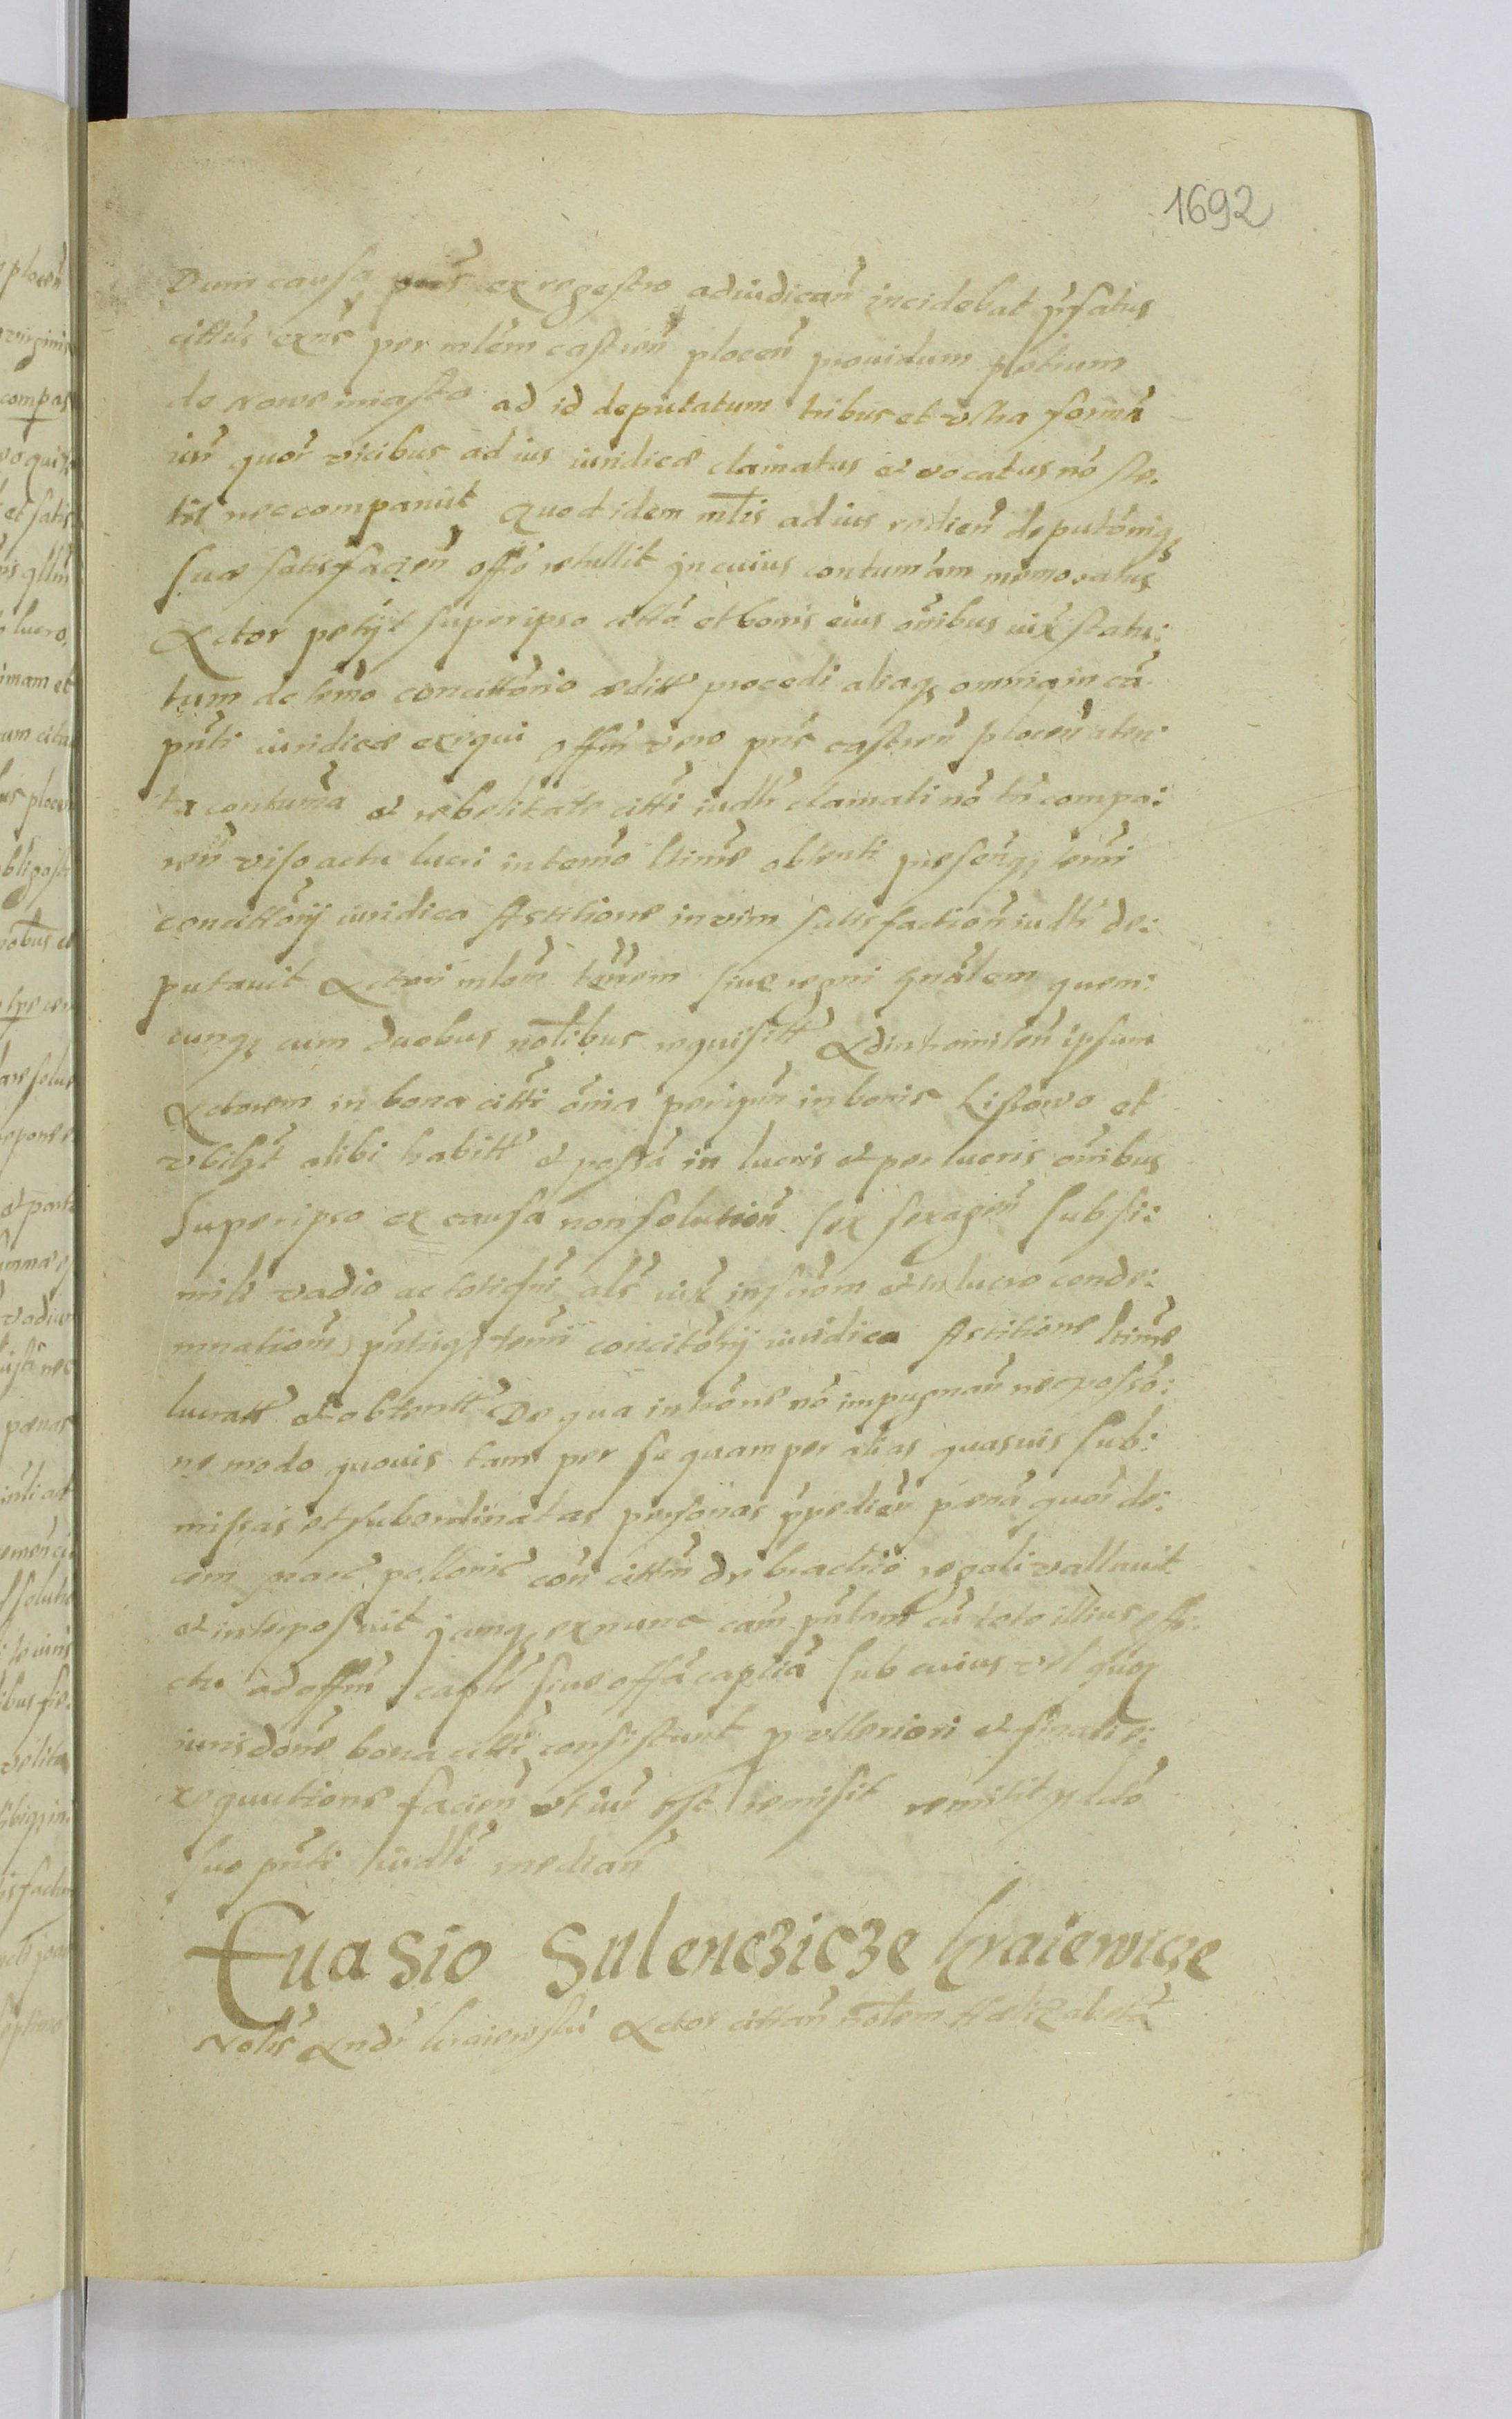 1692
Dum causa pns ex regestro adiudican incidebat pfatus
cittus exns per mlem castren plocen prouidum petrum
de nowe miasto ad id deputatum tribus et vltra forma
iur quor vicibus ad ius iuridice clamatus et vocatus no ste.
tit nec comparuit Quod idem mlis ad ius redien deputoniq
suae satisfacien offo retullit in cuius contumam memoratus
Actor petijt super ipso citto et bonis eius onibus iux statu:
tum de termo concittorio editt procedi aliaq omnia in ca.
pnti iuridice exequi offm vero pns castren plocen aten:
ta contuma et rebelitate citti iudlr clamati no tn compa:
ren viso actu lucri in termo ltime obtenti presenq termi
concittorij iuridica Astitione in vim satisfaction iudlr de:
putauit Actori mlem terrem siue regni gnalem quem:
cunq cum duobus nolibus requisitt Adintromitten ipsum
Actorem in bona citti omia per ipm in bonis Listowo et
vbilzt alibi habitt et possa in lucris et per lucris onibus
super ipso ex causa non solution sex sexagen sub si:
mili vadio ac totidem als iux inscrom et in lucro conde:
mnationis pntiq termi concitorij iuridica Astitione ltime
lucratt et obtentt De qua introne no impugnan nec posso:
ne modo quouis tam per se quam per alias quasuis sub:
missas et subordinatas personas ppedien pena quor de:
cem marc pollonic con cittm de brachio regali vallauit
et interposuit jamq ex nunc cam pntem cu toto illius effe:
ctu ad offm caple siue offa caplia sub cuius vel quor
iurisdone bona citti consistunt p vlteriori et finali e:
xequutione facien vt iur est remisit remittitq lcto
suo pnti iudlr median
Euasio Sulenczicze kraiewicze
Nolis Andr kraiewski Actor cittan nolem Halizabetha